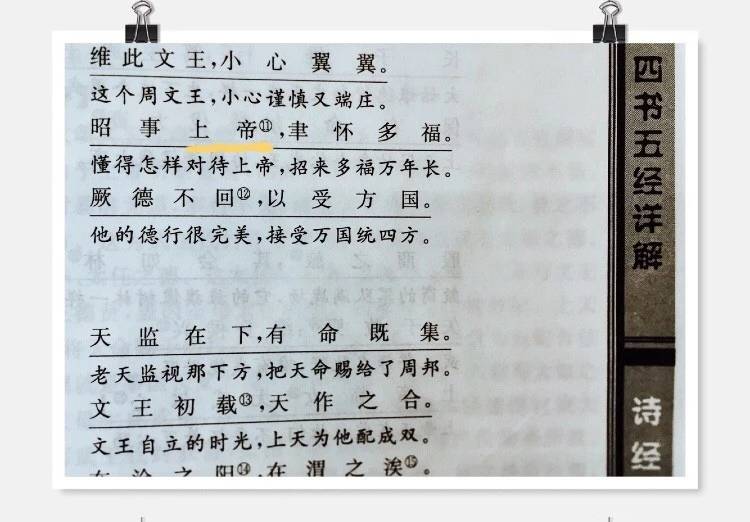 维此文王,小心翼翼。
这个周文王,小心谨慎又端庄。
昭事上帝⑪,聿怀多福。
懂得怎样对待上帝,招来多福万年长。
厥德不回⑫,以受方国。
他的德行很完美,接受万国统四方。
天监在下,有命既集。
老天监视那下方,把天命赐给了周邦。
文王初载⑬,天作之合。
文王自立的时光,上天为他配成双。
在洽之阳⑭,在渭之涘⑮。
四书五经详解
诗经